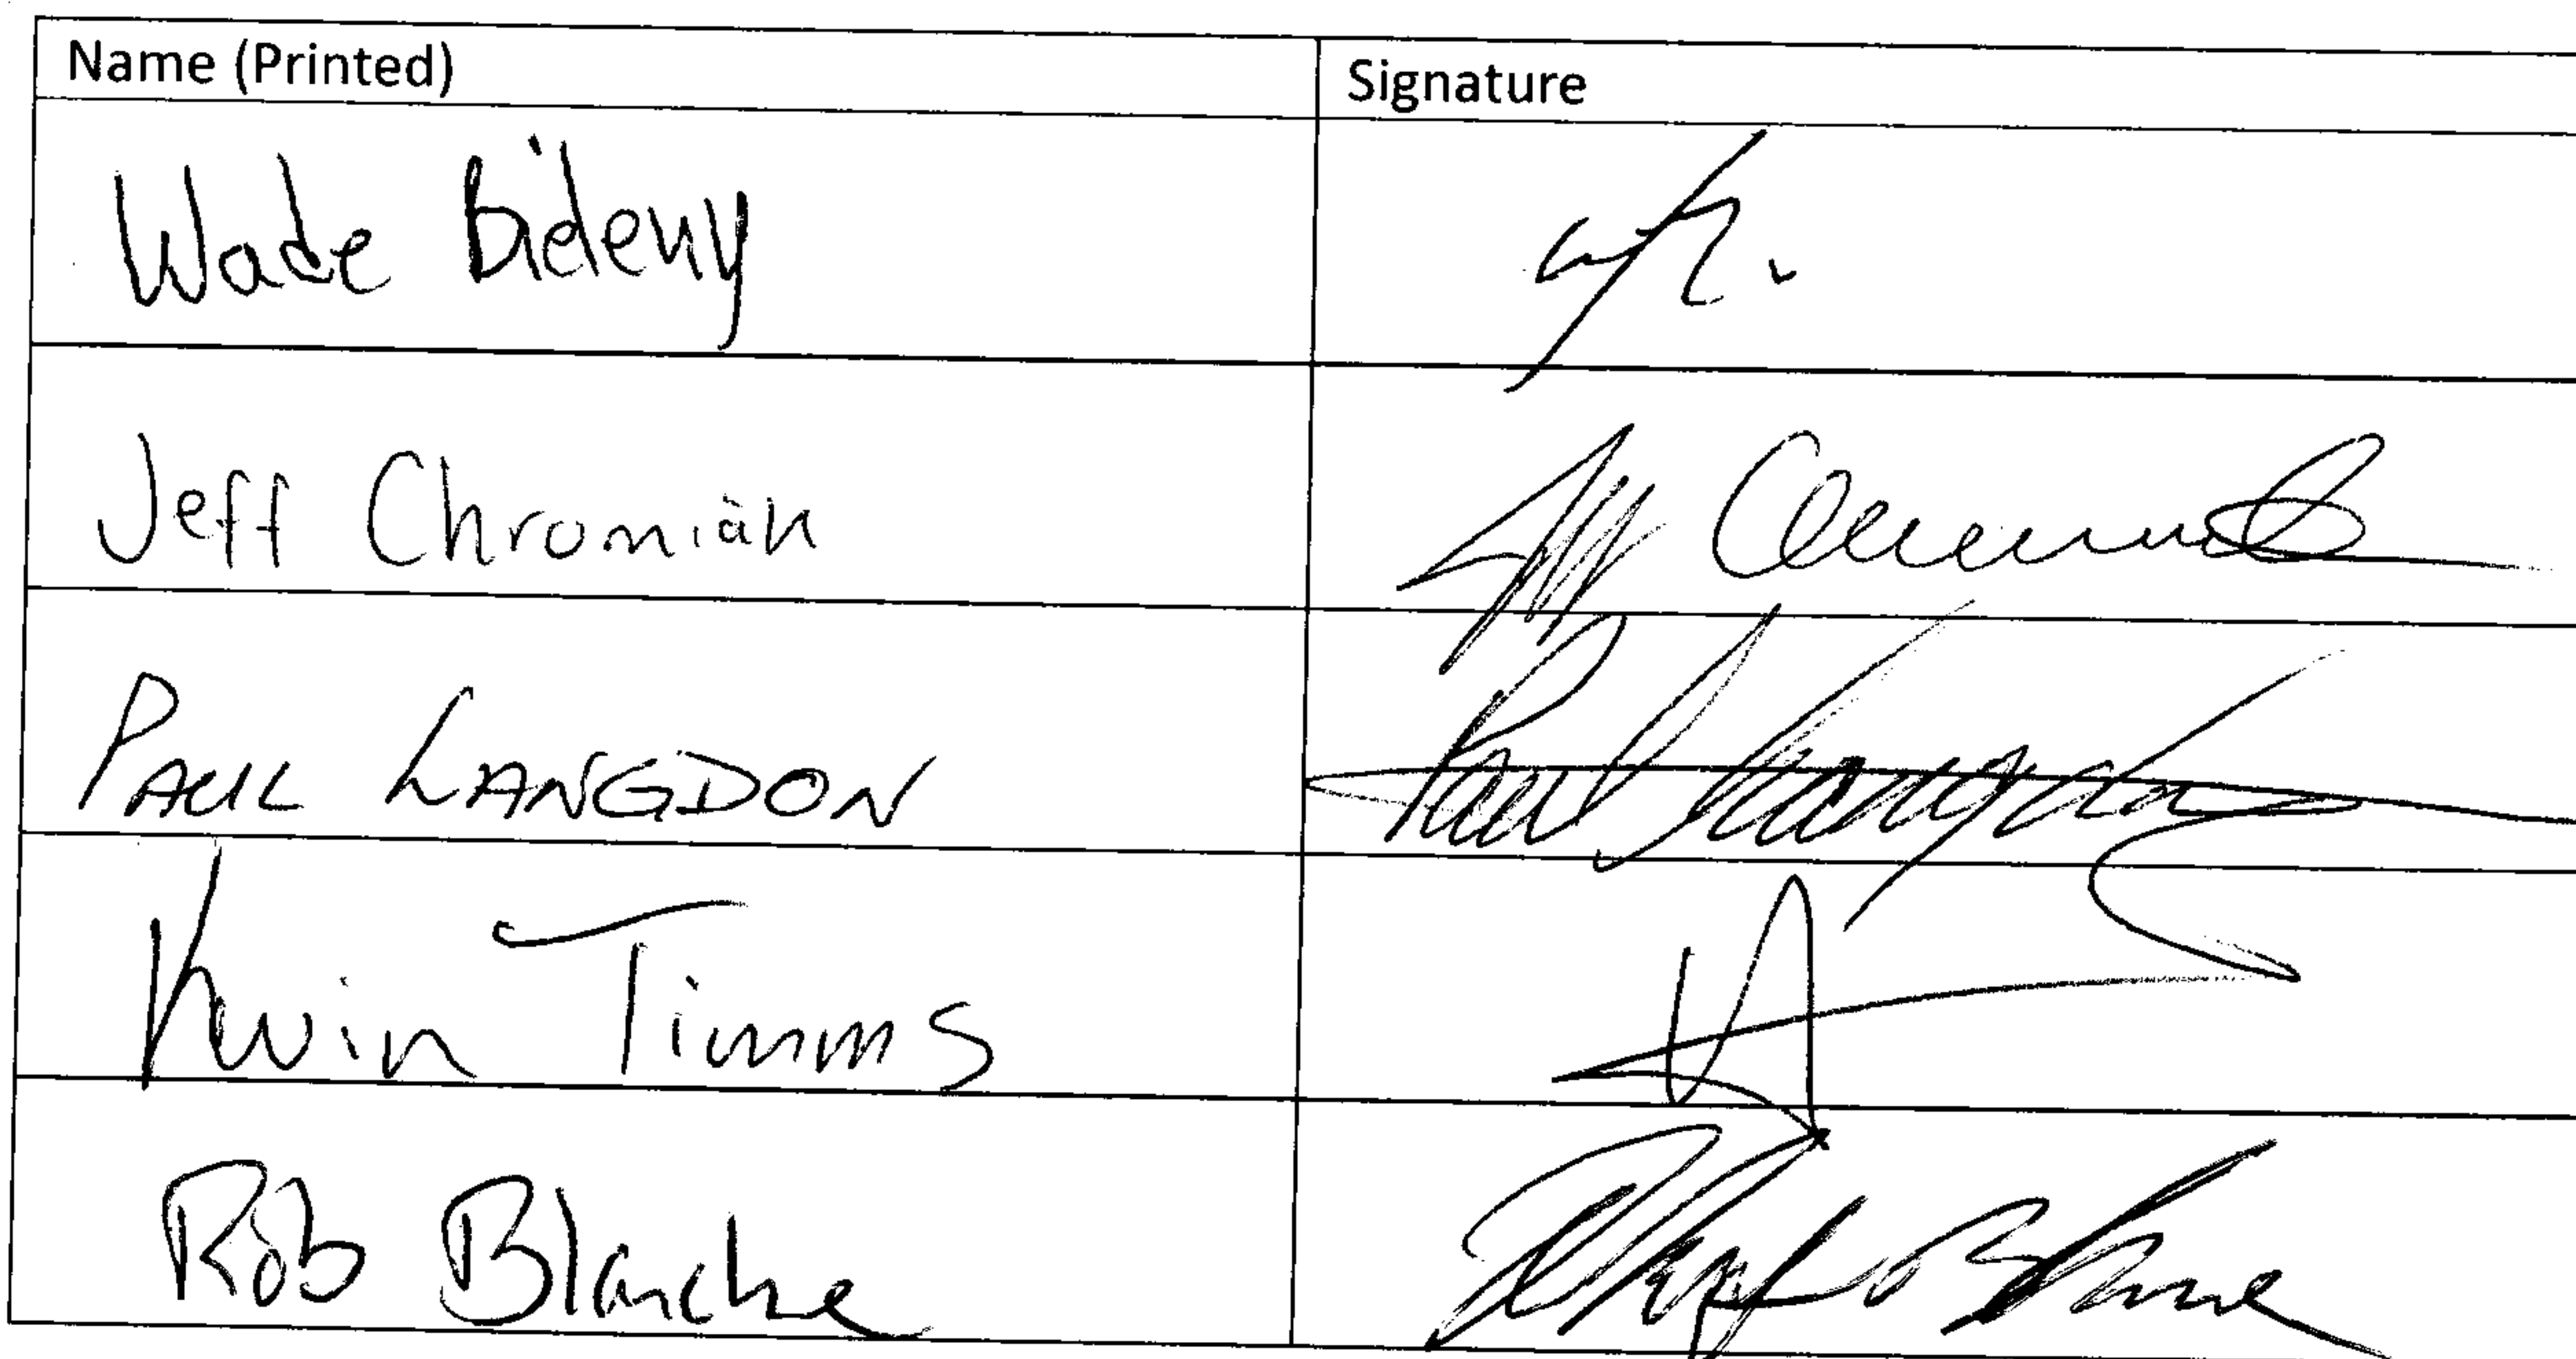 Name (Printed) Signature
Wade Bideny
Jeff Chromiak
PAUL LANGDON Paul Langdon
Kevin Timms
Rob Blanche